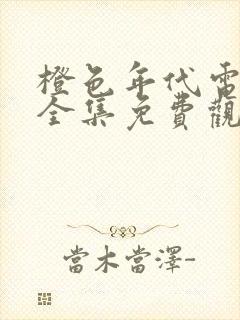 橙色年代電
全集免費觀
當木當澤-